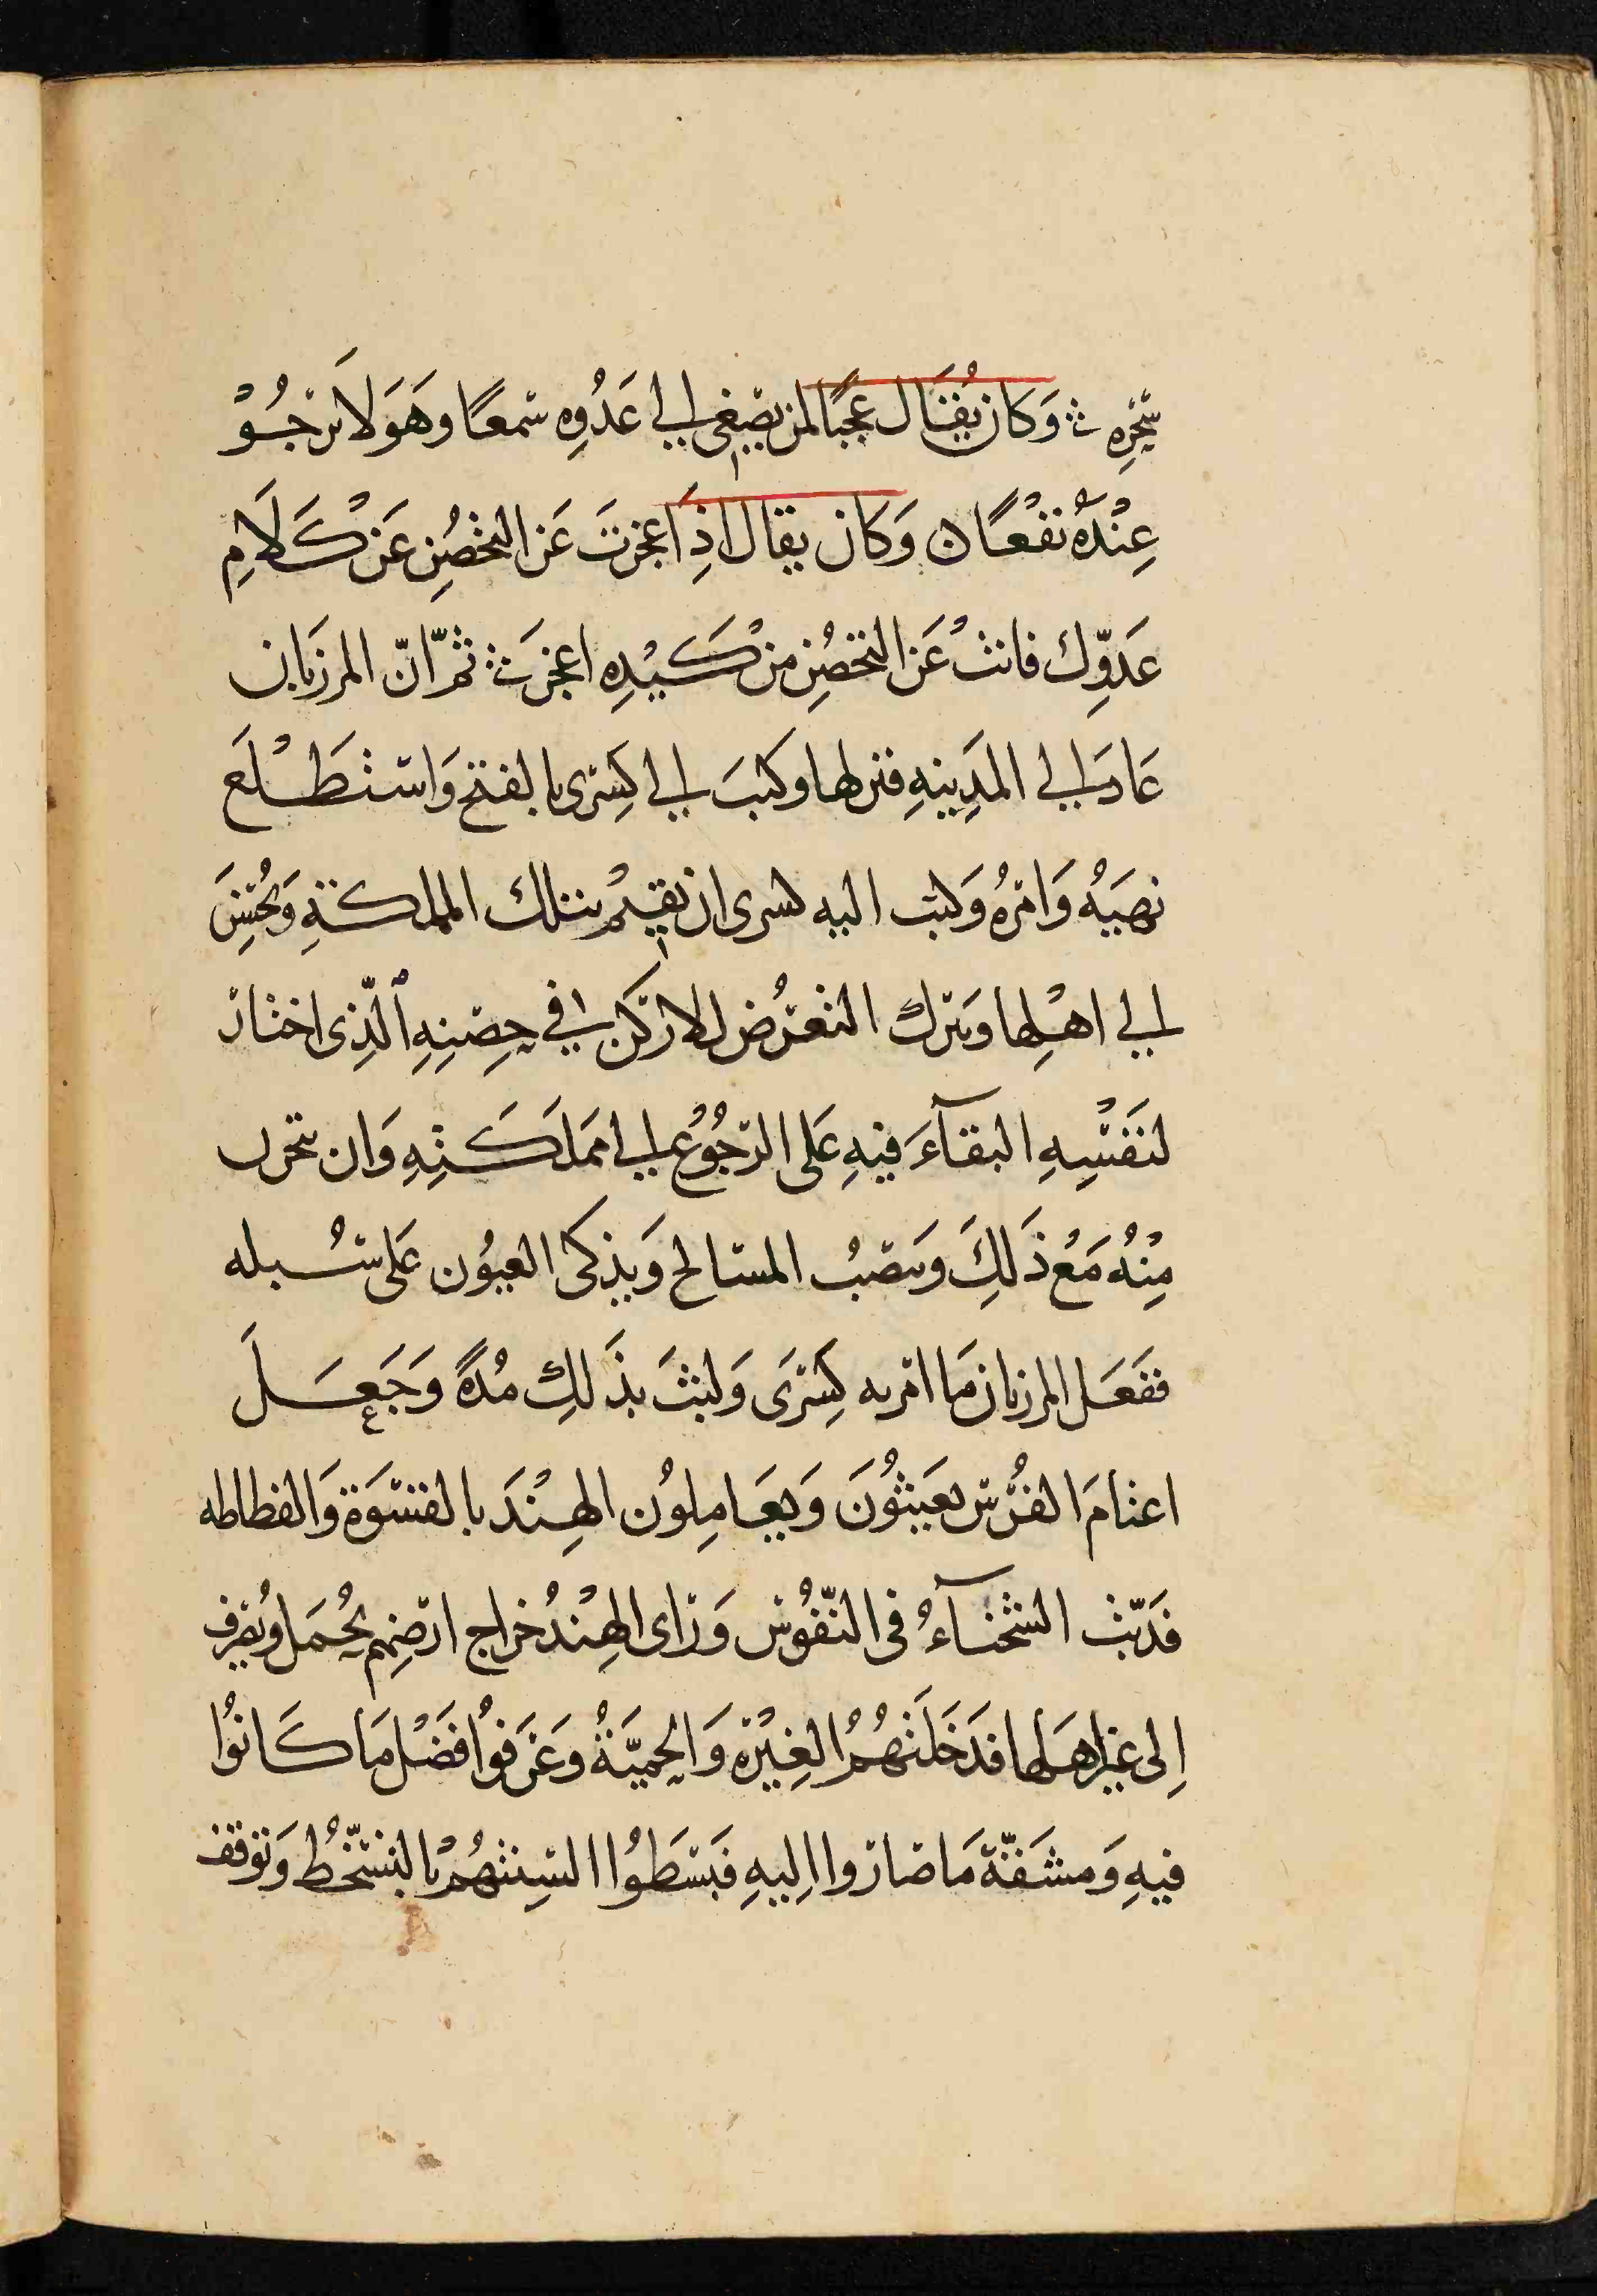 سِحْرِهِ ۞ وَكان يُقَال عَجَبًا لمن يصْغى الى عَدُوِه سَمعًا وهَوَلا يَرْجُوْ
عِنْدَهُ نفْعًا ۞ وَكان يقال اذِا عجزتَ عَن التحصُنِ عَنْ كَلَامِ
عَدوِّك فانتْ عَن التحصُنِ منْ كَيْدِه اعجزَ ۞ ثمّ انّ المرزبَان
عَادَ الى المدِينهِ فنزلها وكتبَ الى كِسْرى بالفتحِ وَاسْتطْلَع
نهيَهُ وَامْرهُ وَكتب اليه كسرى ان يقيمْ بتلك المملكةِ وَيُحْسِنَ
الى اهْلِها ويترك التعَرُّض لاركن فى حِصْنِهِ الّذِى اختارَ
لنَفْسِهِ البقآءَ فيهِ عَلى الرجُوُع الى مملَكَتِهِ وَان يتحرز
مِنْهُ مَعْ ذَلِكَ وينصبُ المسَالح وَيذكى العيُون عَلى سُبله
ففَعَل المرزبان مَا امَر به كِسْرَى وَلبثَ بذَلِك مُدةً وَجَعَلَ
اغنامَ الفُرْس يعَيثُونَ وَيعَامِلوُن الهِنْدَ بالقسْوَة وَالفظاظه
فدَبّت الشحْنآءُ فى النّفُوس وَرَاى الهِنْدُ خراج ارضِهم يُحْمَل ويُصَرف
اِلى غيرِ اهلها فدَخَلَتهُمُ الغِيْرَة وَالحِميّةُ وعَرَفوُا فَضْل مَا كَانوُا
فيهِ وَمشَقّة مَا صَاروا اِليهِ فبَسَطوُا السِنتهُمْ بالتسَّخُّطِ وَتوقف